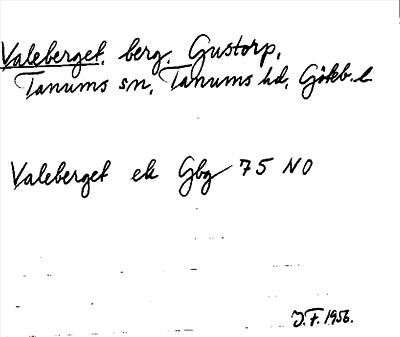 Valeberget, berg, Gustorp,
Tanums sn, Tanums hd, Götb. l.
Valeberget ek Gbg 75 NO
J.F. 1956.